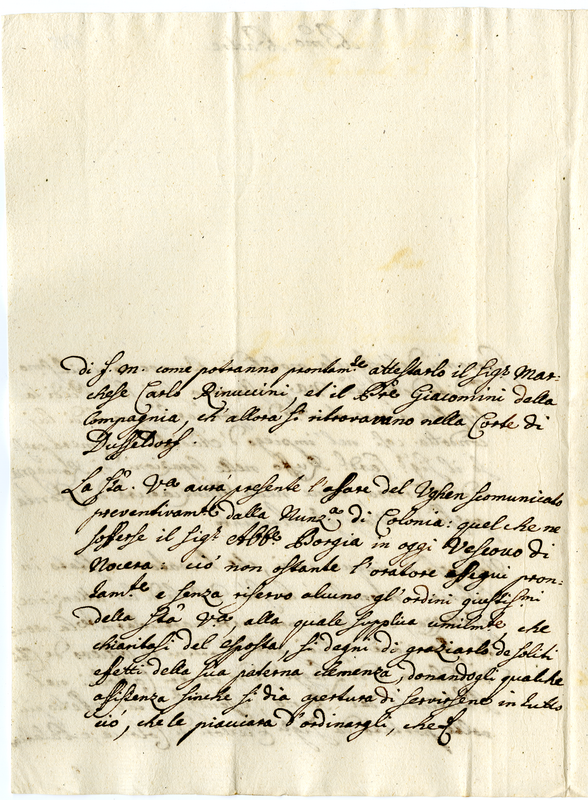 di S. M. come potranno prontam.te attestarlo il Sig.r Mar-
chese Carlo Rinuccini, et il P.re Giacomini della
Compagnia, ch'allora si ritrovavano nella Corte di
Dusseldorf.
La S.tà V.ra aurà presente l'afare del Ughen scomunicato
preventivam.te dalla Nunz.ra di Colonia: quel che ne
sofferse il Sig.r Abb.e Borgia in oggi Vescovo di
Nocera: ciò non ostante l'oratore esseguì pron-
tam.te e senza riservo alcuno gl'ordini giustissimi
della S.tà V.ra alla quale supplica umilm.te, che
chiaritasi del esposto, si degni di graziarlo de soliti
effetti della sua paterna clemenza, donandogli qualche
assistenza sinche si dia apertura di servirsene in tutto
ciò, che le piacciara d'ordinargli, che